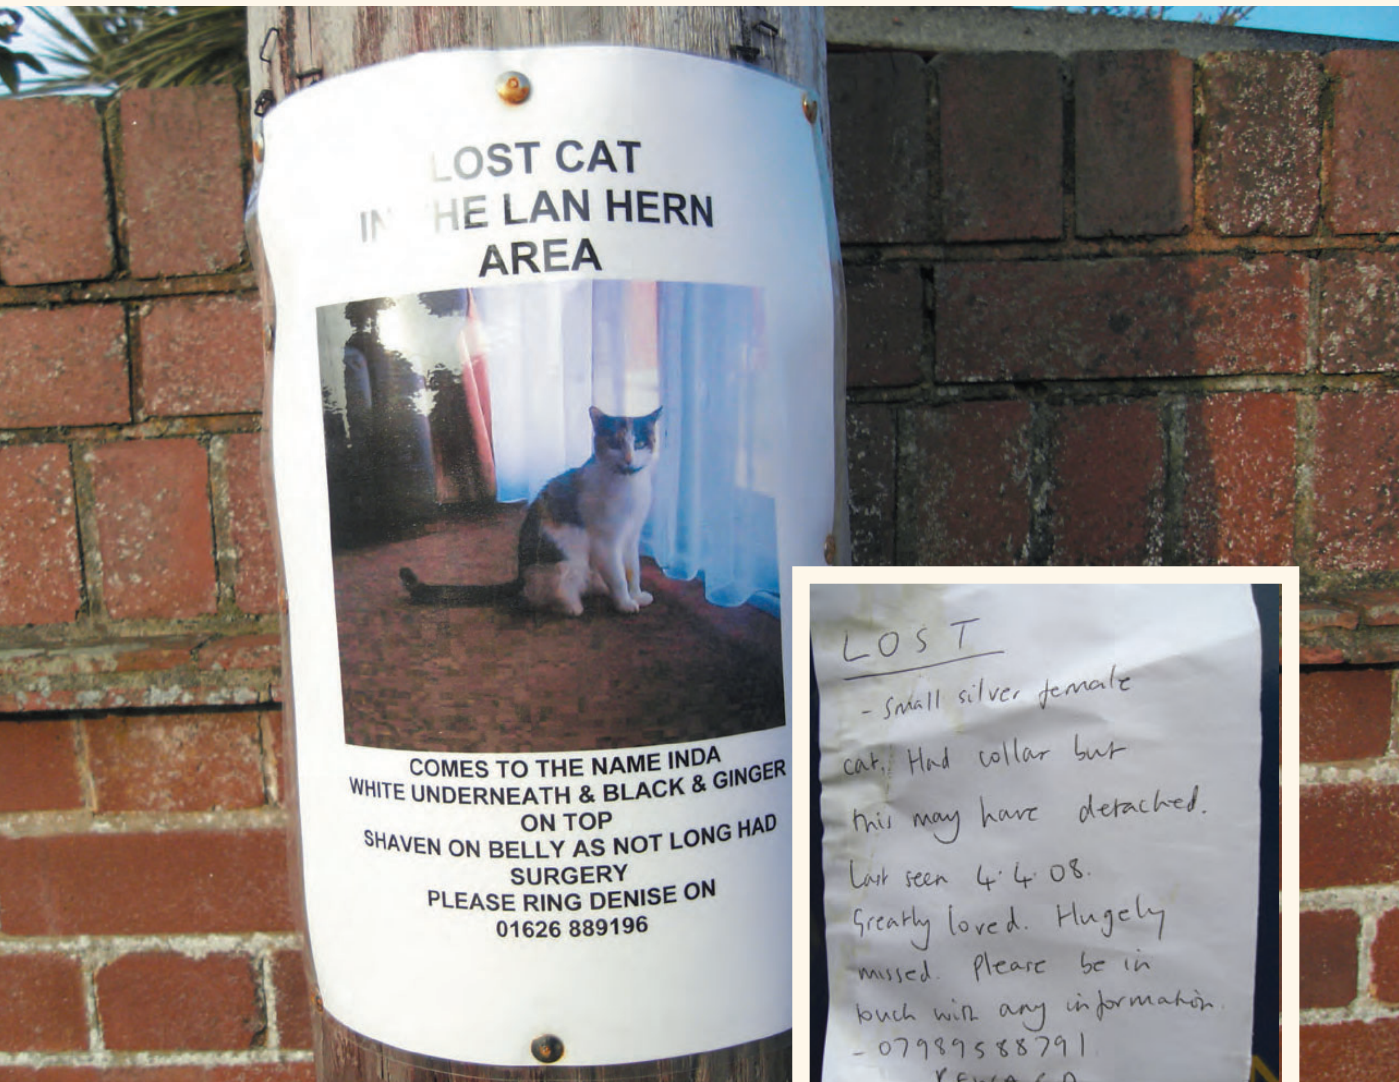 LOST CAT
IN THE LAN HERN
AREA
COMES TO THE NAME INDA
WHITE UNDERNEATH & BLACK & GINGER
ON TOP
SHAVEN ON BELLY AS NOT LONG HAD
SURGERY
PLEASE RING DENISE ON
01626 889196
LOST
- Small silver female
cat. Had collar but
this may have detached.
Last seen 4.4.08.
Greatly loved. Hugely
missed. Please be in
touch with any information.
- 07989588791